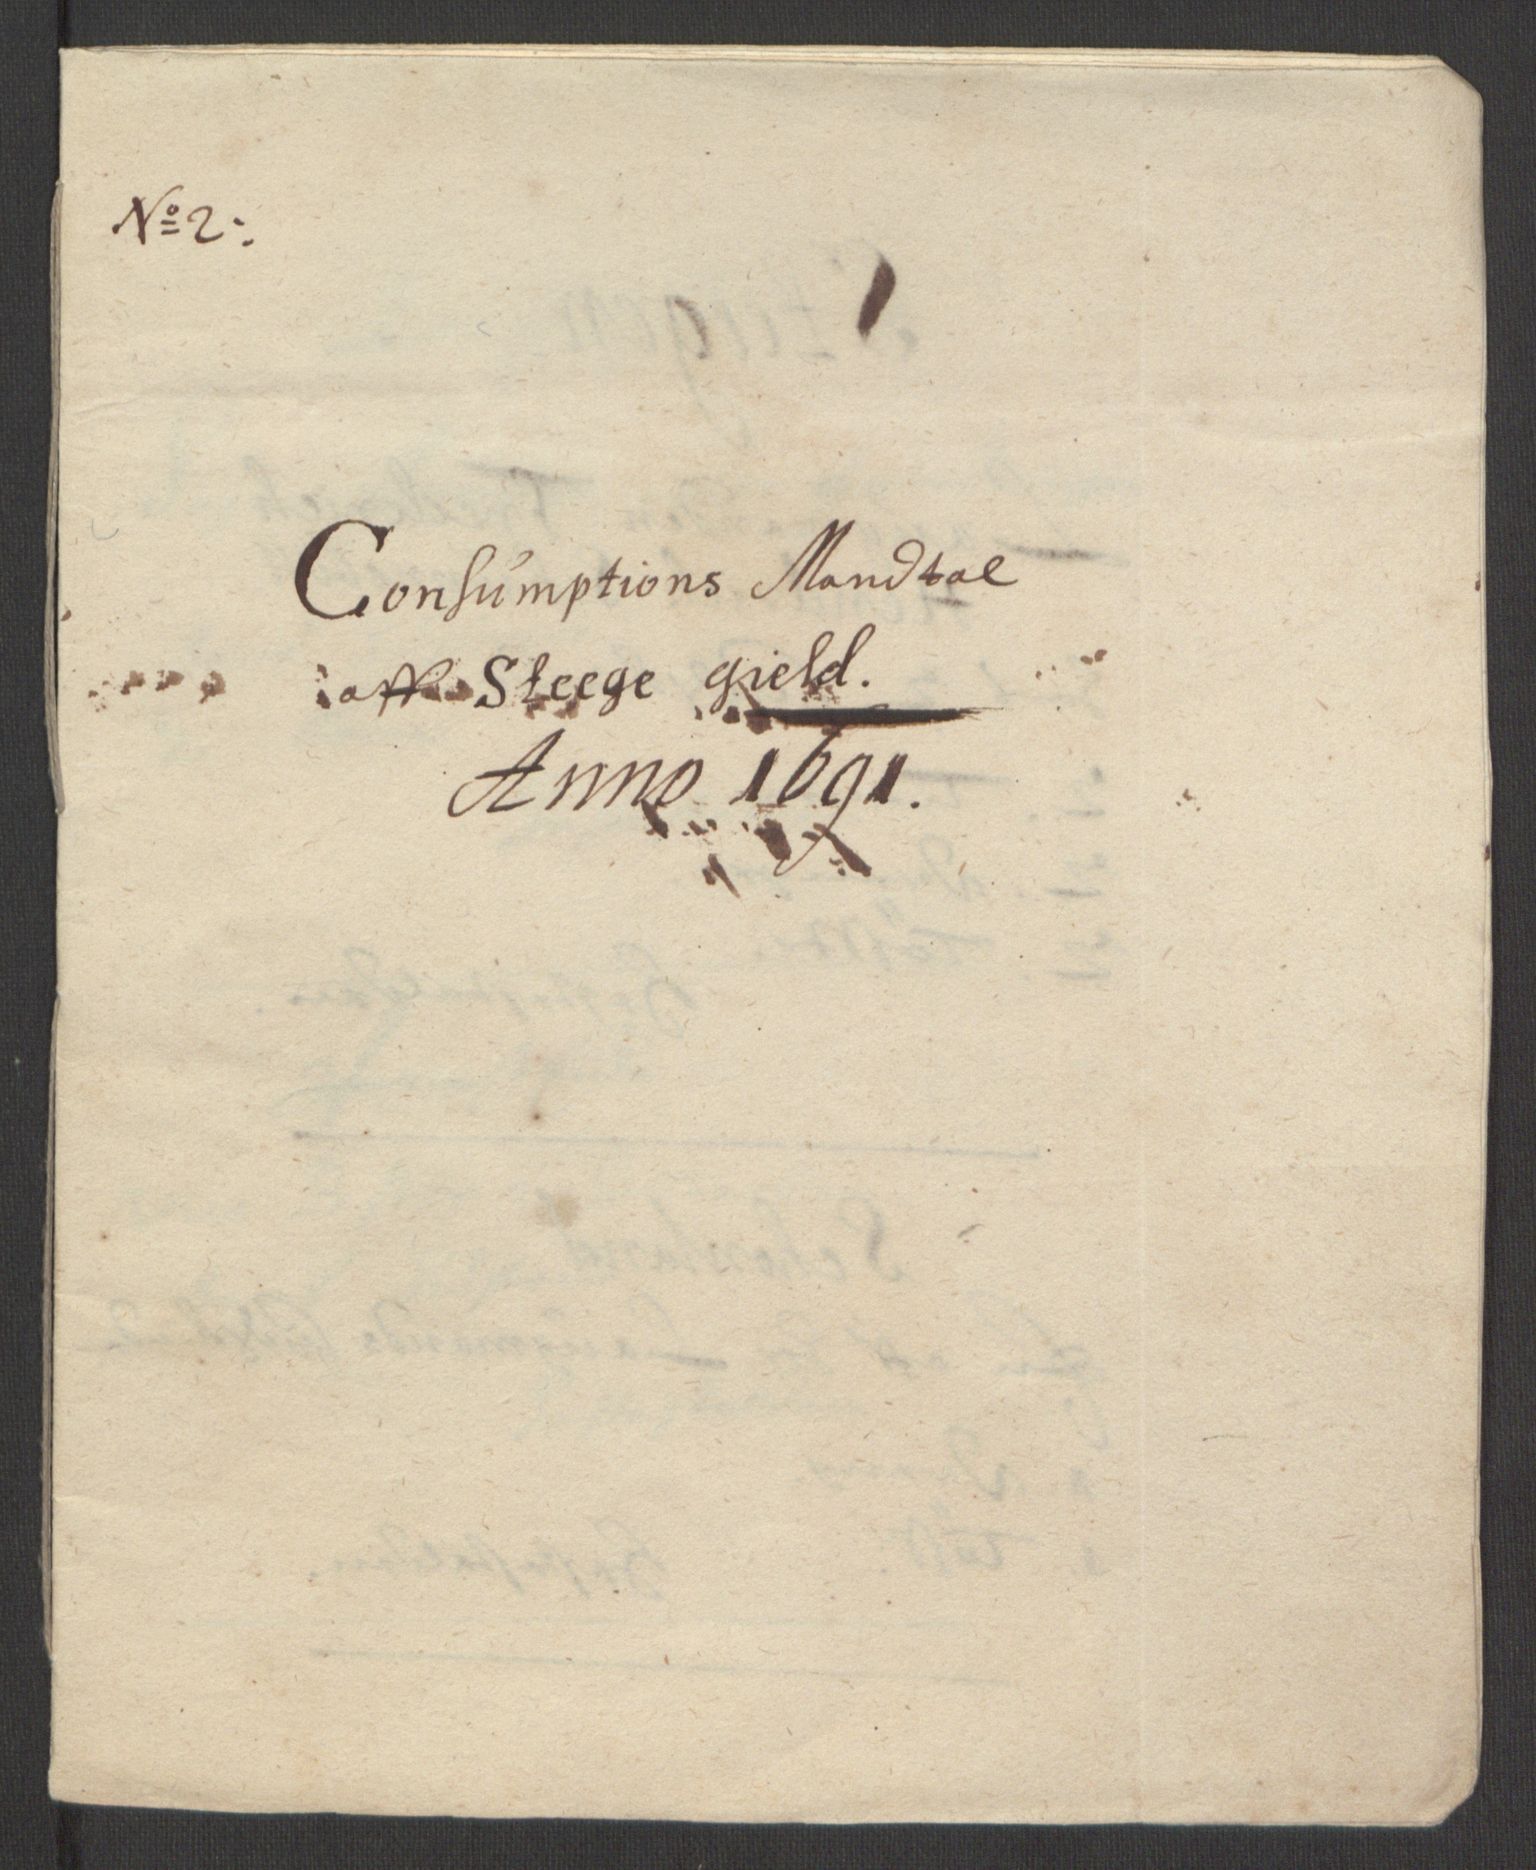 No 2:
Consumptions Mandtal
aff Sleege gield.
Anno 1691.